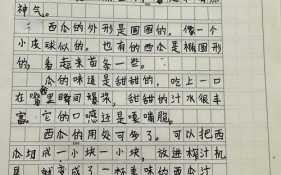 神气。
西瓜的外形是圆圆的，像一个
小皮球似的。也有的西瓜是椭圆形
的，看起来苗条一些。
瓜的味道是甜甜的，吃上一口
在嘴里瞬间爆浆，甜甜的汁水很丰
富。它的口感还是嘎嘣脆。
西瓜的用处可多了。可以把西
瓜切成一小块一小块，放进榨汁机
里，就变成了一杯美味的西瓜汁